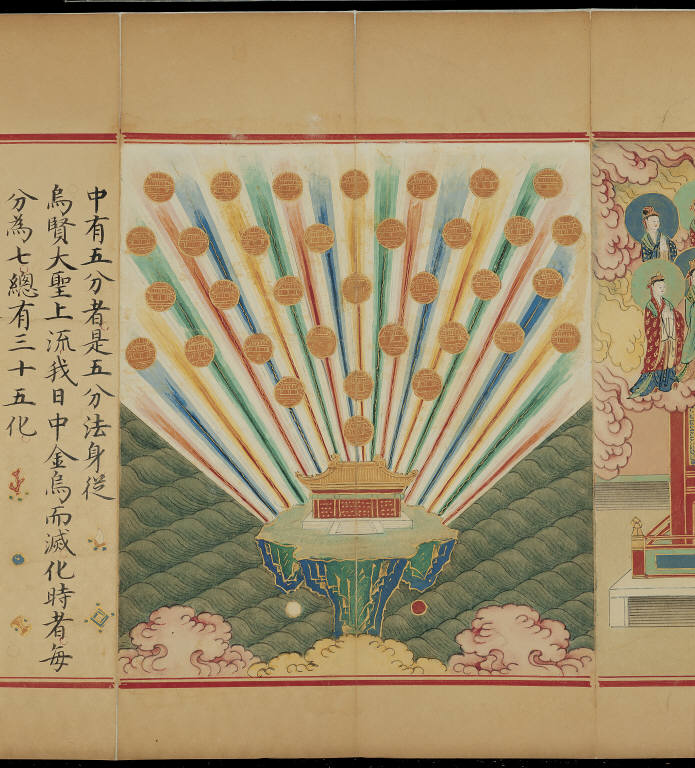 中有五分者是五分法身従
烏賢大聖上流我日中金烏而滅化時者每
分為七總有三十五化